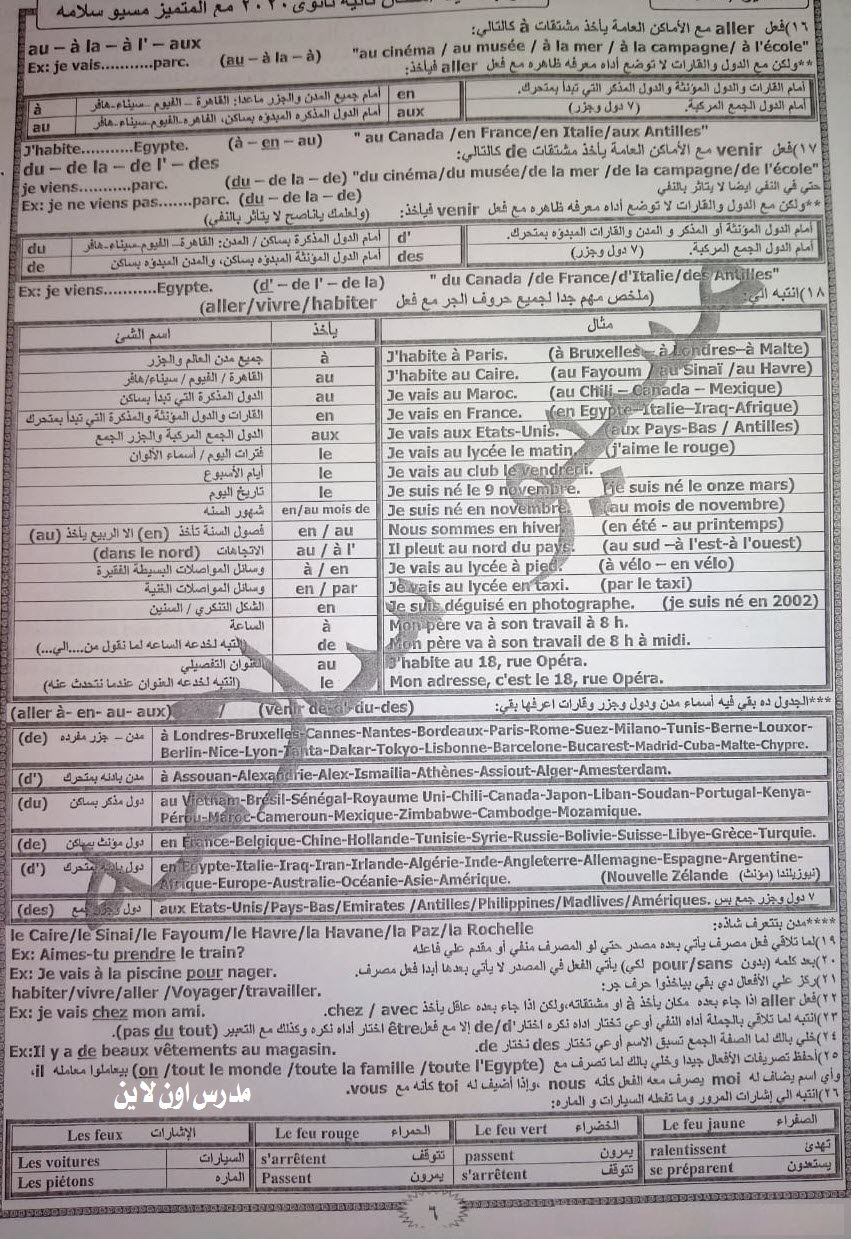 ثانية ثانوى ٢٠٢٠ مع المتميز مسيو سلامه
١٦)فعل aller مع الأماكن العامة يأخذ مشتقات à كالتالي:
au – à la – à l' – aux
"au cinéma / au musée / à la mer / à la campagne/ à l'école"
Ex: je vais...........parc. (au – à la – à)
**ولكن مع الدول والقارات لا توضع أداه معرفه ظاهره مع فعل aller فيأخذ:
à أمام جميع المدن والجزر ماعدا: القاهرة – الفيوم – سيناء-هافر en أمام القارات والدول المؤنثة والدول المذكر التي تبدأ بمتحرك.
au أمام الدول المذكره المبدؤه بساكن، القاهره-الفيوم-سيناء-هافر aux أمام الدول الجمع المركبة. (٧ دول وجزر)
J'habite..........Egypte. (à – en – au) " au Canada /en France/en Italie/aux Antilles"
١٧)فعل venir مع الأماكن العامة يأخذ مشتقات de كالتالي:
du – de la – de l' – des
je viens...........parc. (du – de la – de) "du cinéma/du musée/de la mer /de la campagne/de l'école"
Ex: je ne viens pas.......parc. (du – de la – de) حتى في النفي ايضا لا يتأثر بالنفي
**ولكن مع الدول والقارات لا توضع أداه معرفه ظاهره مع فعل venir فيأخذ: (ولعلمك ياناصح لا يتأثر بالنفي)
du أمام الدول المذكرة بساكن / المدن: القاهرة- الفيوم-سيناء-هافر d' أمام الدول المؤنثة أو المذكر و المدن والقارات المبدؤه بمتحرك.
de أمام الدول المؤنثة المبدؤه بساكن، والمدن المبدؤه بساكن des أمام الدول الجمع المركبة. (٧ دول وجزر)
Ex: je viens...........Egypte. (d' – de l' – de la) " du Canada /de France/d'Italie/des Antilles"
١٨)انتبه الي: (ملخص مهم جدا لجميع حروف الجر مع فعل aller/vivre/habiter)
اسم الشئ يأخذ مثال
جميع مدن العالم والجزر à J'habite à Paris. (à Bruxelles – à Londres–à Malte)
القاهرة / الفيوم / سيناء/هافر au J'habite au Caire. (au Fayoum / au Sinaï /au Havre)
الدول المذكرة التي تبدأ بساكن au Je vais au Maroc. (au Chili – Canada – Mexique)
القارات والدول المؤنثة والمذكرة التي تبدأ بمتحرك en Je vais en France. (en Egypte–Italie–Iraq-Afrique)
الدول الجمع المركبة والجزر الجمع aux Je vais aux Etats-Unis. (aux Pays-Bas / Antilles)
فترات اليوم / أسماء الألوان le Je vais au lycée le matin. (j'aime le rouge)
أيام الأسبوع le Je vais au club le vendredi.
تاريخ اليوم le Je suis né le 9 novembre. (je suis né le onze mars)
شهور السنه en/au mois de Je suis né en novembre. (au mois de novembre)
فصول السنة تأخذ (en) الا الربيع يأخذ (au) en / au Nous sommes en hiver. (en été - au printemps)
الاتجاهات (dans le nord) au / à l' Il pleut au nord du pays. (au sud –à l'est-à l'ouest)
وسائل المواصلات البسيطة الفقيرة à / en Je vais au lycée à pied. (à vélo – en vélo)
وسائل المواصلات الغنية en / par Je vais au lycée en taxi. (par le taxi)
الشكل التنكري / السنين en Je suis déguisé en photographe. (je suis né en 2002)
الساعة à Mon père va à son travail à 8 h.
(انتبه لخدعه الساعه لما نقول من....الي...) de Mon père va à son travail de 8 h à midi.
العنوان التفصيلي au J'habite au 18, rue Opéra.
(انتبه لخدعه العنوان عندما نتحدث عنه) le Mon adresse, c'est le 18, rue Opéra.
***الجدول ده بقي فيه أسماء مدن ودول وجزر وقارات اعرفها بقي: (aller à- en- au- aux) / (venir de-d'-du-des)
(de) مدن – جزر مفرده à Londres-Bruxelles-Cannes-Nantes-Bordeaux-Paris-Rome-Suez-Milano-Tunis-Berne-Louxor-
Berlin-Nice-Lyon-Tanta-Dakar-Tokyo-Lisbonne-Barcelone-Bucarest-Madrid-Cuba-Malte-Chypre.
(d') مدن بادئه بمتحرك à Assouan-Alexandrie-Alex-Ismailia-Athènes-Assiout-Alger-Amesterdam.
(du) دول مذكر بساكن au Vietnam-Brésil-Sénégal-Royaume Uni-Chili-Canada-Japon-Liban-Soudan-Portugal-Kenya-
Pérou-Maroc-Cameroun-Mexique-Zimbabwe-Cambodge-Mozamique.
(de) دول مؤنث بساكن en France-Belgique-Chine-Hollande-Tunisie-Syrie-Russie-Bolivie-Suisse-Libye-Grèce-Turquie.
(d') دول بادئه بمتحرك en Egypte-Italie-Iraq-Iran-Irlande-Algérie-Inde-Angleterre-Allemagne-Espagne-Argentine-
Afrique-Europe-Australie-Océanie-Asie-Amérique. (Nouvelle Zélande نيوزيلندا (مؤنث))
(des) دول وجزر جمع aux Etats-Unis/Pays-Bas/Emirates /Antilles/Philippines/Madlives/Amériques. ٧ دول وجزر جمع بس
****مدن بتتعرف شاذه: le Caire/le Sinai/le Fayoum/le Havre/la Havane/la Paz/la Rochelle
١٩)لما تلاقي فعل مصرف يأتي بعده مصدر حتي لو المصرف منفي أو مقدم علي فاعله Ex: Aimes-tu prendre le train?
٢٠)بعد كلمه (بدون pour/sans لكي) يأتي الفعل في المصدر لا يأتي بعدها أبدا فعل مصرف. Ex: Je vais à la piscine pour nager.
٢١)ركز علي الأفعال دي بقي بياخذوا حرف جر: habiter/vivre/aller /Voyager/travailler.
٢٢)فعل aller اذا جاء بعده مكان يأخذ à او مشتقاته،ولكن اذا جاء بعده عاقل يأخذ chez / avec. Ex: je vais chez mon ami.
٢٣)انتبه لما تلاقي بالجملة أداه النفي أوعي تختار اداه نكره اختار de/d' إلا مع فعل être اختار أداه نكره وكذلك مع التعبير (pas du tout).
٢٤)خلي بالك لما الصفة الجمع تسبق الاسم أوعي تختار des نختار de. Ex:Il y a de beaux vêtements au magasin.
٢٥)أحفظ تصريفات الأفعال جيدا وخلي بالك لما تصرف مع (on /tout le monde /toute la famille /toute l'Egypte) بيعاملوا معامله il،
وأي اسم يضاف له moi يصرف معه الفعل كأنه nous ،وإذا أضيف له toi كأنه مع vous.
٢٦)انتبه الي إشارات المرور وما تفعله السيارات و الماره:
مدرس اون لاين
Les feux الإشارات Le feu rouge الحمراء Le feu vert الخضراء Le feu jaune الصفراء
Les voitures السيارات s'arrêtent تتوقف passent يمرون ralentissent تهدئ
Les piétons الماره Passent يمرون s'arrêtent تتوقف se préparent يستعدون
٦